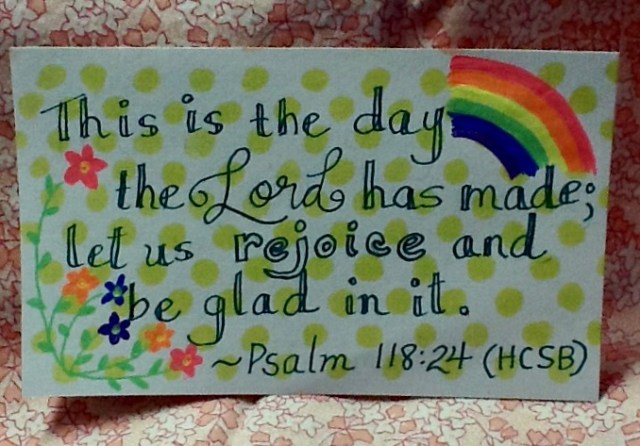 This is the day
the Lord has made;
let us rejoice and
be glad in it.
~Psalm 118:24 (HCSB)